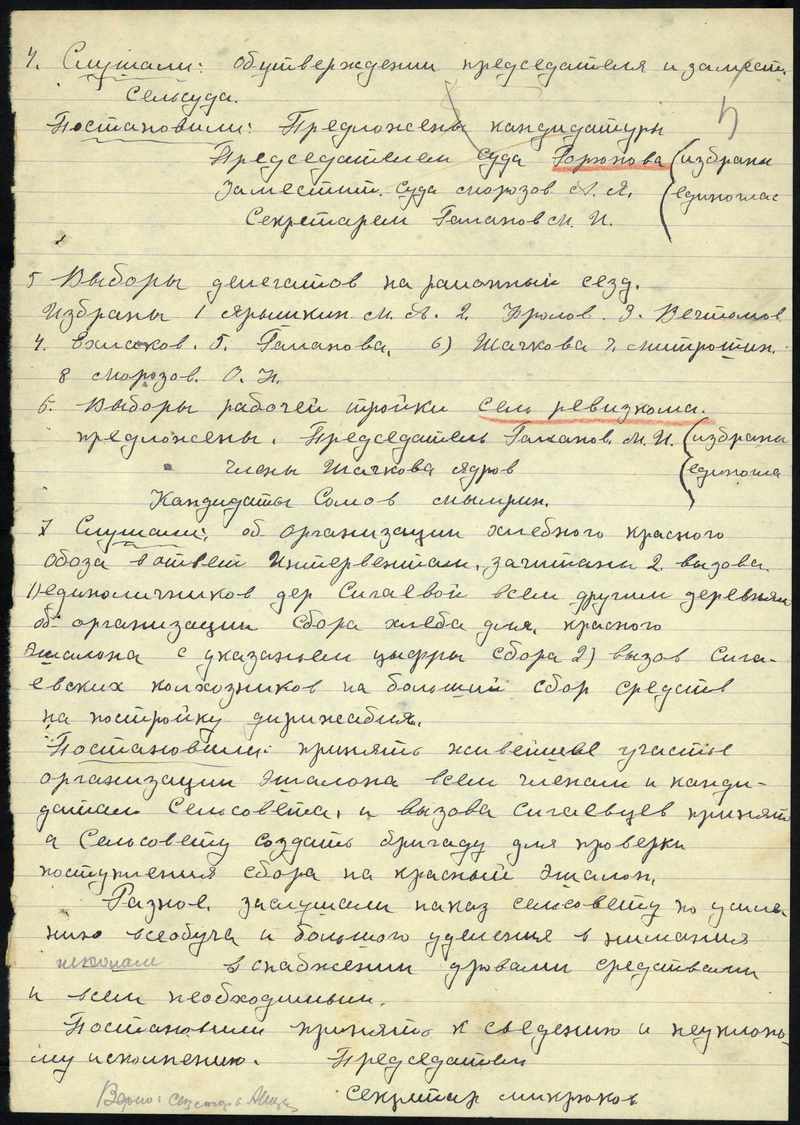 4. Слушали: Об утверждении председателя и замест.
Сельсуда.
5
Постановили: Предложены кандидатуры
Председателем суда Горюнова (избраны
Заместит. суда Морозов А. Я. единоглас
Секретарем Гаманов М. И.
5 Выборы делегатов на районный сезд.
Избраны 1 Ярышкин М. А. 2. Фролов. 3. Вечтомов
4. 5. Гаманова, 6) Шачкова 7. Митрошин.
8 Морозов. О. Н.
6. Выборы рабочей тройки сель ревизкома.
предложены. Председатель Гаманов М. И. (избраны
Члены Шачкова Ядров (единогла
Кандидаты Сомов Мымрин.
7 Слушали: об организации хлебного красного
обоза в ответ Интервентам, зачитаны 2 вызова.
1) единоличников дер Сигаевой всем другим деревням
об организации сбора хлеба для, красного
Эшалона с указаньем цыфры сбора 2) вызов Сига-
евских колхозников на больший сбор средств
на постройку дирижабля.
Постановили: принять живейшее участье
организации Эшалона всем членам и канди-
датам Сельсовета, и вызова Сигаевцев принять
а Сельсовету создать бригаду для проверки
поступления сбора на красный эшалон,
Разное, заслушали наказ сельсовету по усиле
нию всеобуча и большого уделения внимания
школам в снабжении дровами средствами
и всем необходимым.
Постановили принять к сведению и неуклонно-
му исполнению. Председатель
Секретар Микрюков
Верно: